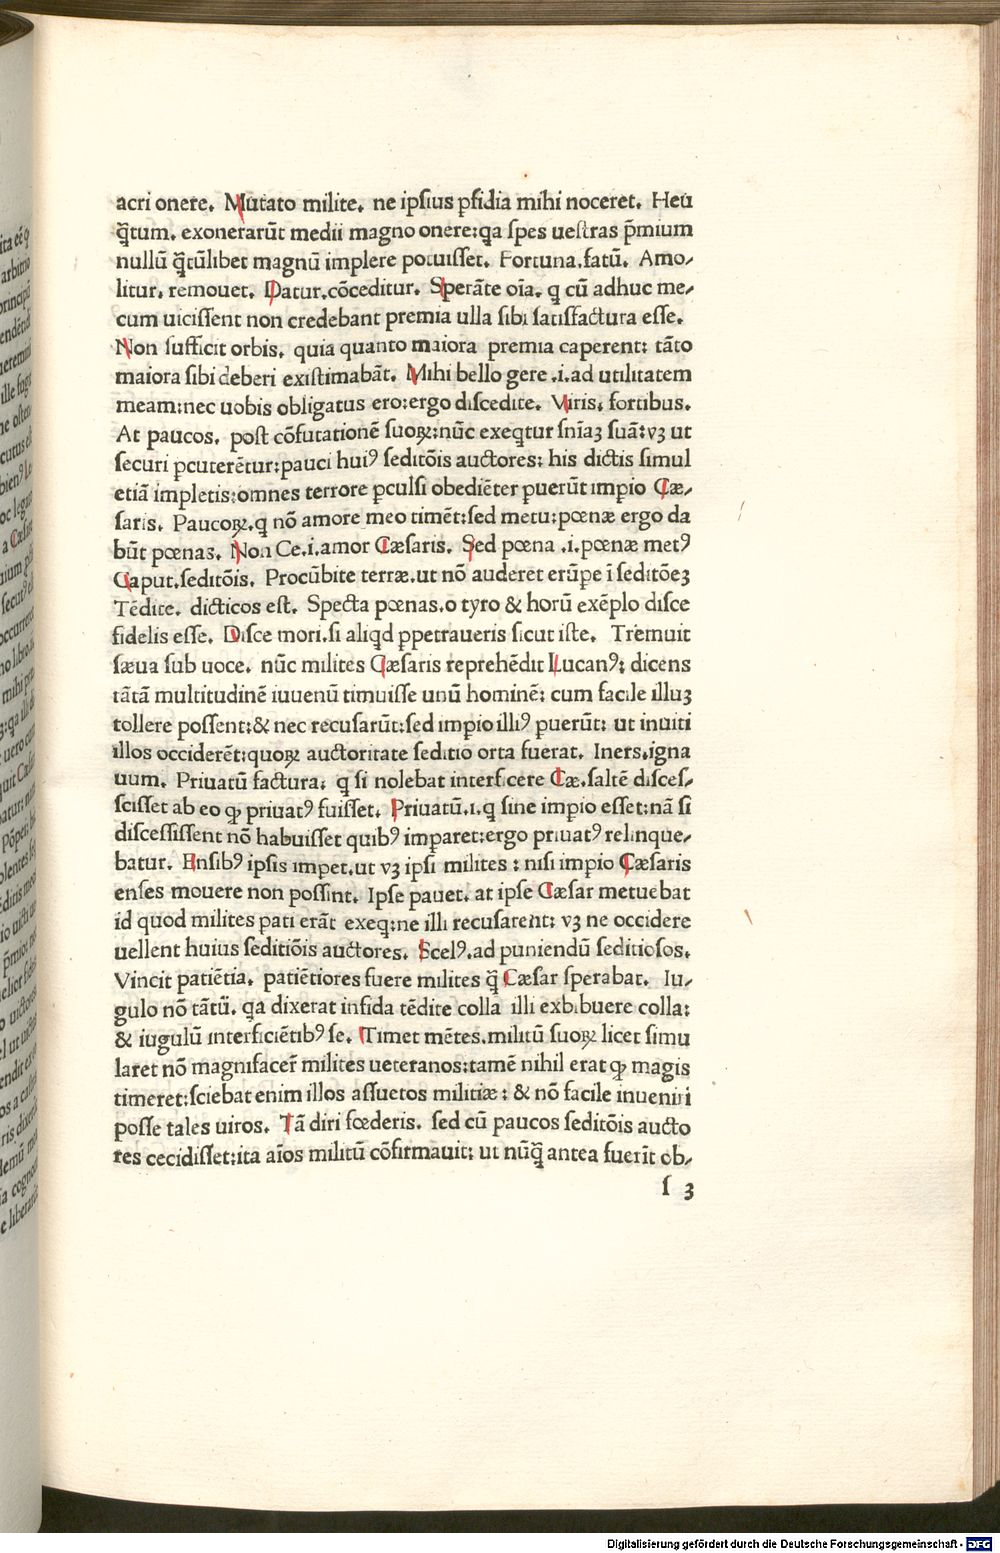 acri onere. Mutato milite. ne ipſius ꝑfidia mihi noceret. Heu
q̄tum. exonerarūt medii magno onere:qa ſpes ueſtras p̄mium
nullū q̄tūlibet magnū implere potuiſſet. Fortuna.fatū. Amo⸗
litur. remouet. Datur.cōceditur. Sperāte oīa. q cū adhuc me⸗
cum uiciſſent non credebant premia ulla ſibi ſatiſfactura eſſe.
Non ſufficit orbis. quia quanto maiora premia caperent: tāto
maiora ſibi deberi exiſtimabāt. Mihi bello gere .i.ad utilitatem
meam:nec uobis obligatus ero:ergo diſcedite. Viris. fortibus.
At paucos. poſt cōfutationē ſuoꝝ:nūc exeqtur ſnīaꝫ ſuā:vꝫ ut
ſecuri ꝑcuterētur:pauci huiꝰ ſeditōis auctores: his dictis ſimul
etiā impletis:omnes terrore ꝑculſi obediēter ꝑuerūt impio Cæ⸗
ſaris. Paucoꝝ.q nō amore meo timēt:ſed metu:pœnæ ergo da
būt pœnas. Non Ce.i.amor Cæſaris. Sed pœna .i.pœnæ metꝰ
Caput.ſeditōis. Procūbite terræ.ut nō auderet erūpe ī ſeditōeꝫ
Tēdite. dicticos eſt. Specta pœnas.o tyro & horū exēplo diſce
fidelis eſſe. Diſce mori.ſi aliqd ꝑpetraueris ſicut iſte. Tremuit
ſæua ſub uoce. nūc milites Cæſaris reprehēdit Lucanꝰ: dicens
tātā multitudinē iuuenū timuiſſe unū hominē: cum facile illuꝫ
tollere poſſent:& nec recuſarūt:ſed impio illiꝰ ꝑuerūt: ut inuiti
illos occiderēt:quoꝝ auctoritate ſeditio orta fuerat. Iners.igna
uum. Priuatū factura: q ſi nolebat interficere Cæ.ſaltē diſceſ⸗
ſciſſet ab eo ꝙ priuatꝰ fuiſſet. Priuatū.i.q ſine impio eſſet:nā ſi
diſceſſiſſent nō habuiſſet quibꝰ imparet:ergo priuatꝰ relinque⸗
batur. Enſibꝰ ipſis impet.ut vꝫ ipſi milites : niſi impio Cæſaris
enſes mouere non poſſint. Ipſe pauet. at ipſe Cæſar metuebat
id quod milites pati erāt exeq:ne illi recuſarent: vꝫ ne occidere
uellent huius ſeditiōis auctores. Scelꝰ.ad puniendū ſeditioſos.
Vincit patiētia. patiētiores fuere milites q̄ Cæſar ſperabat. Iu⸗
gulo nō tātū. qa dixerat infida tēdite colla illi exbibuere colla:
& iugulū interficiētibꝰ ſe. Timet mētes.militū ſuoꝝ licet ſimu
laret nō magnifacer̄ milites ueteranos:tamē nihil erat ꝙ magis
timeret:ſciebat enim illos aſſuetos militiæ : & nō facile inueniri
poſſe tales uiros. Tā diri fœderis. ſed cū paucos ſeditōis aucto
res cecidiſſet:ita aīos militū cōfirmauit: ut nūq̄ antea fuerīt ob⸗
ſ 3
Digitalisierung gefördert durch die Deutsche Forschungsgemeinschaft - DFG